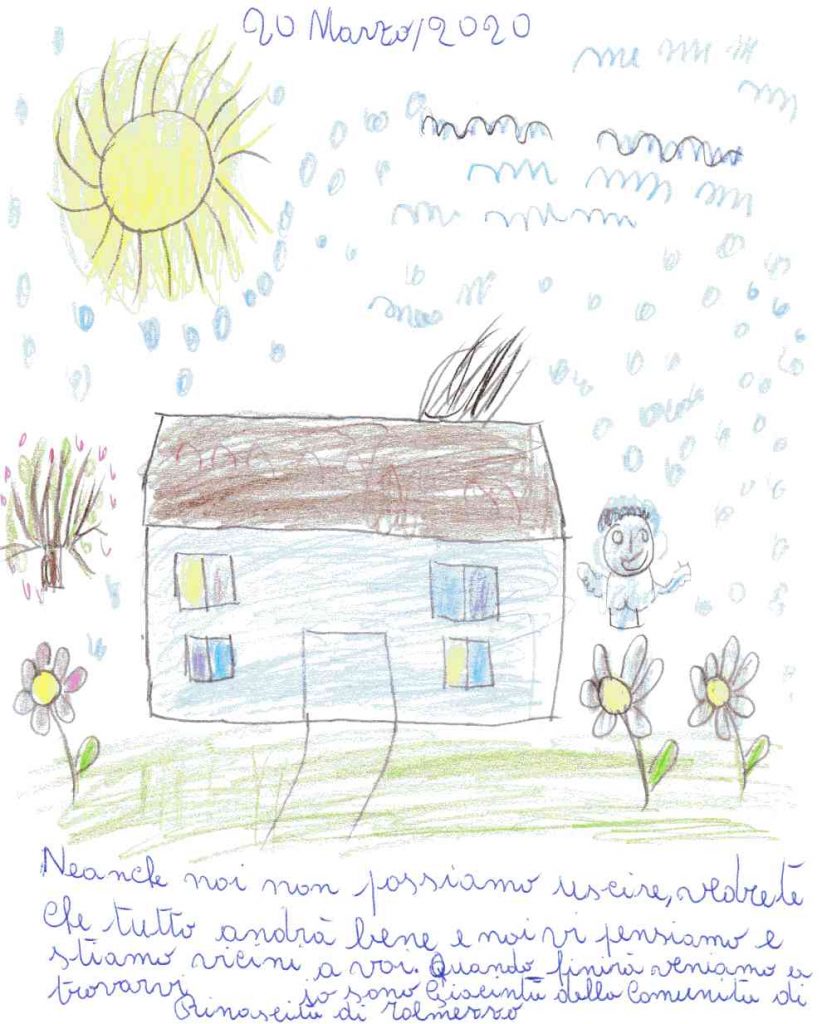 20 Marzo/2020
Neanche noi non possiamo uscire, vedrete
che tutto andrà bene e noi vi pensiamo e
stiamo vicini a voi. Quando finirà veniamo a
trovarvi io sono Giacinta della Comunità di
Rinascita di Tolmezzo